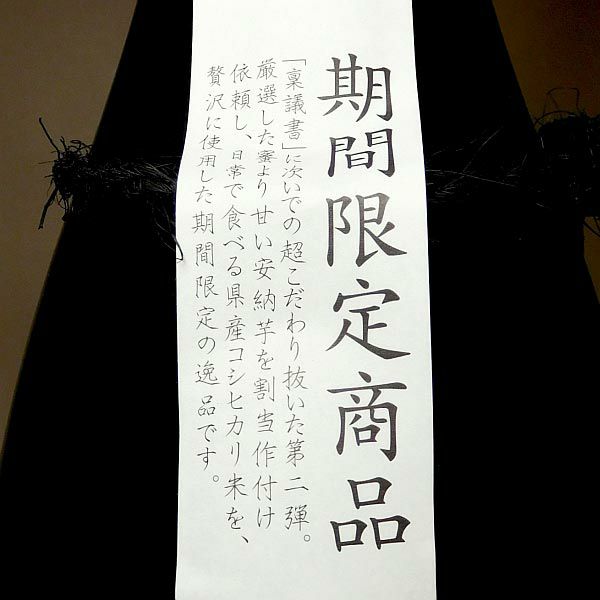 期間限定商品
「稟議書」に次いでの超こだわり抜いた第二弾。
厳選した蜜より甘い安納芋を割当作付け
依頼し、日常で食べる県産コシヒカリ米を、
贅沢に使用した期間限定の逸品です。